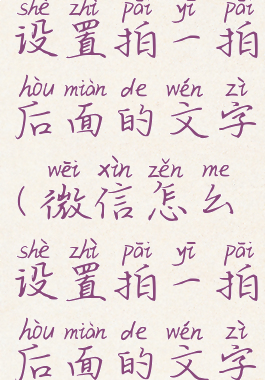 shè zhì pāi yī pāi
设置拍一拍
hòu miàn de wén zì
后面的文字
wēi xìn zěn me
（微信怎么
shè zhì pāi yī pāi
设置拍一拍
hòu miàn de wén zì
后面的文字